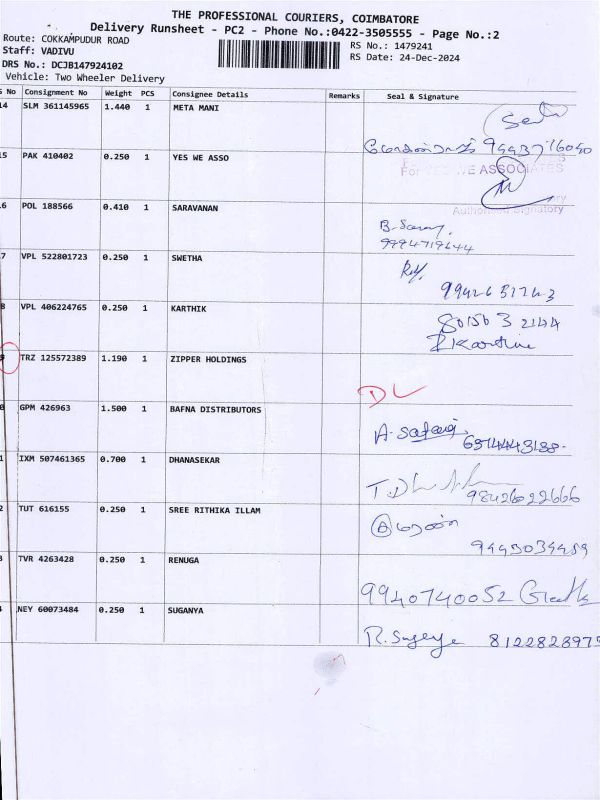 THE PROFESSIONAL COURIERS, COIMBATORE
Delivery Runsheet - PC2 - Phone No.:0422-3505555 - Page No.:2
Route: COKKAMPUDUR ROAD
RS No.: 1479241
Staff: VADIVU
RS Date: 24-Dec-2024
DRS No.: DCJB147924102
Vehicle: Two Wheeler Delivery
S No Consignment No Weight PCS Consignee Details Remarks Seal & Signature
14 SLM 361145965 1.440 1 META MANI
15 PAK 410402 0.250 1 YES WE ASSO
For YES WE ASSOCIATES
Authorised Signatory
6 POL 188566 0.410 1 SARAVANAN
9994719644
7 VPL 522801723 0.250 1 SWETHA
8 VPL 406224765 0.250 1 KARTHIK
80156 3 2144
9 TRZ 125572389 1.190 1 ZIPPER HOLDINGS
DL
GPM 426963 1.500 1 BAFNA DISTRIBUTORS
1 IXM 507461365 0.700 1 DHANASEKAR
98426022666
2 TUT 616155 0.250 1 SREE RITHIKA ILLAM
3 TVR 4263428 0.250 1 RENUGA
9940740052
NEY 60073484 0.250 1 SUGANYA
8122828975